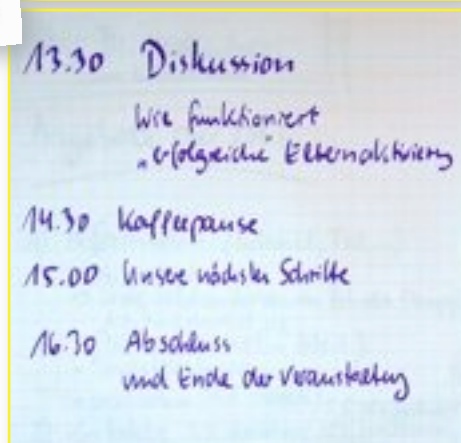 13.30 Diskussion
Wie funktioniert
„erfolgreiche" Elternaktivierung
14.30 Kaffeepause
15.00 Unsere nächsten Schritte
16.30 Abschluss
und Ende der Veranstaltung